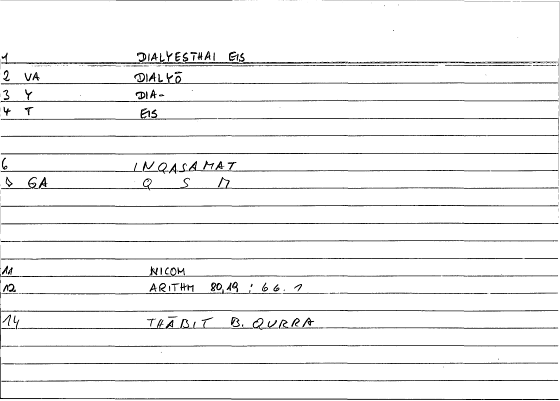 1 DIALYESTHAI EIS
2 VA DIALYŌ
3 Y DIA-
4 T EIS
6 INQASAMAT
GA Q S M
11 NICOM
12 ARITHM 80,19 : 66.1
14 THĀBIT B. QURRA